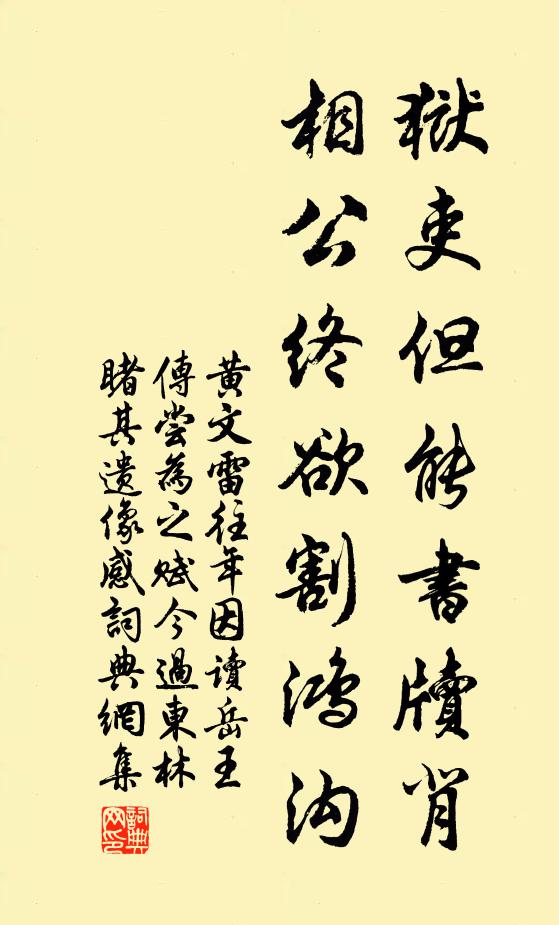 獄吏但能書牘背
相公終欲割鴻沟
黄文雷往年因讀岳王
傳嘗為之賦今過東林
睹其遺像感詞典網集
詞典
网印